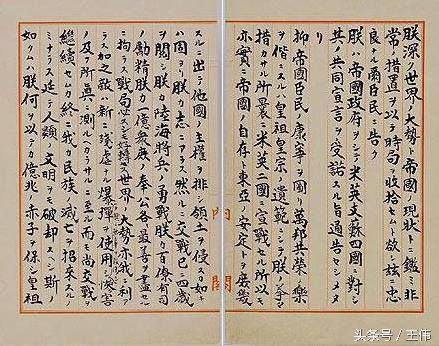 朕深ク世界ノ大勢ト帝國ノ現狀トニ鑑ミ非
常ノ措置ヲ以テ時局ヲ收拾セムト欲シ茲ニ忠
良ナル爾臣民ニ告ク
朕ハ帝國政府ヲシテ米英支蘇四國ニ對シ
其ノ共同宣言ヲ受諾スル旨通告セシメタ
リ
抑〻帝國臣民ノ康寧ヲ圖リ萬邦共榮ノ樂
ヲ偕ニスルハ皇祖皇宗ノ遺範ニシテ朕ノ拳々
措カサル所曩ニ米英二國ニ宣戰セル所以モ
亦實ニ帝國ノ自存ト東亞ノ安定トヲ庶幾
內閣
スルニ出テ他國ノ主權ヲ排シ領土ヲ侵スカ如キ
ハ固ヨリ朕カ志ニアラス然ルニ交戰已ニ四歲
ヲ閱シ朕カ陸海將兵ノ勇戰朕カ百僚有司
ノ勵精朕カ一億衆庶ノ奉公各〻最善ヲ盡セル
ニ拘ラス戰局必スシモ好轉セス世界ノ大勢亦我ニ利ア
ラス加之敵ハ新ニ殘虐ナル爆彈ヲ使用シテ慘害
ノ及フ所真ニ測ルヘカラサルニ至ル而モ尚交戰ヲ
繼續セムカ終ニ我カ民族ノ滅亡ヲ招來スル
ノミナラス延テ人類ノ文明ヲモ破却スヘシ斯ノ
如クムハ朕何ヲ以テカ億兆ノ赤子ヲ保シ皇祖
头条号 / 王伟